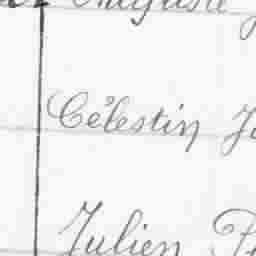 Auguste
Célestin
Julien